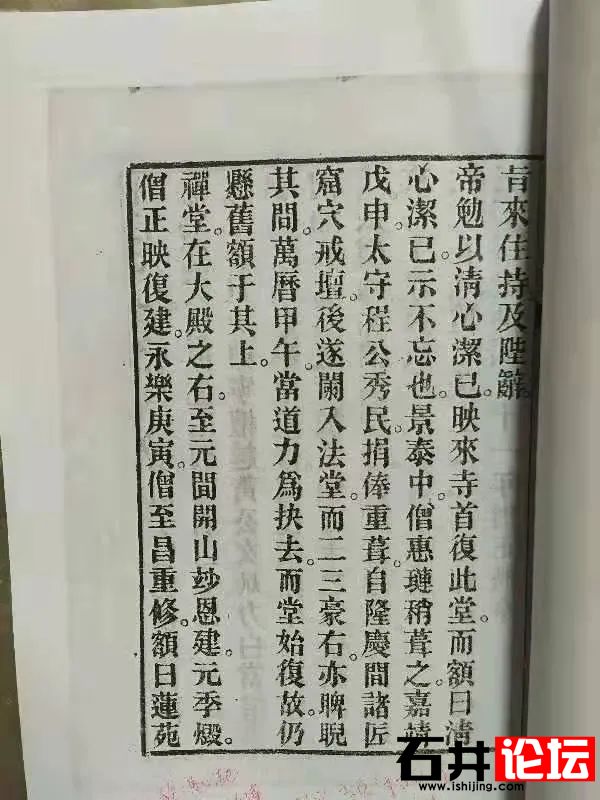 旨來住持及陛辭
帝勉以清心潔已。映來寺首復此堂而額曰清
心潔已示不忘也。景泰中僧惠璉稍葺之。嘉靖
戊申太守程公秀民捐俸重葺。自隆慶間諸匠
窟穴戒壇後遂闌入法堂。而二三豪右亦睥睨
其間。萬曆甲午當道力為抉去。而堂始復故。仍
懸舊額于其上。
禪堂。在大殿之右。至元間開山玅恩建。元季燬。
僧正映復建。永樂庚寅僧至昌重修。額曰蓮苑
石井论坛
www.ishijing.com